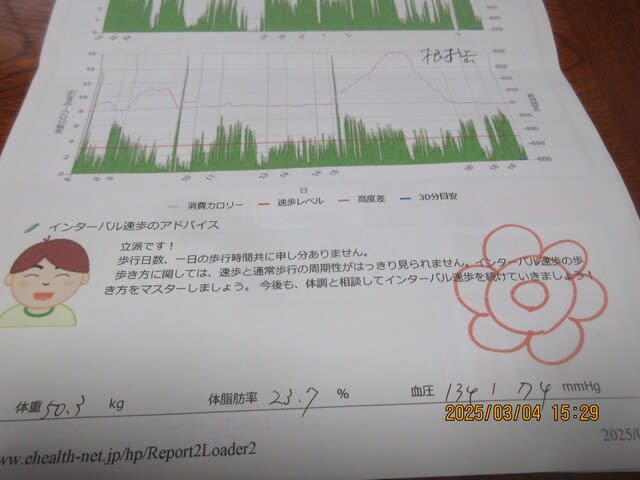 根子岳
消費カロリー(kcal/分)
日
消費カロリー 速歩レベル 高度差 30分目安
インターバル速歩のアドバイス
立派です!
歩行日数、一日の歩行時間共に申し分ありません。
歩き方に関しては、速歩と通常歩行の周期性がはっきり見られません。インターバル速歩の歩
き方をマスターしましょう。 今後も、体調と相談してインターバル速歩を続けていきましょう!
体重 50.3 kg 体脂肪率 23.7 % 血圧 134 / 74 mmHg
2025/03/04 15:29
ww.ehealth-net.jp/hp/Report2Loader2
2025/0